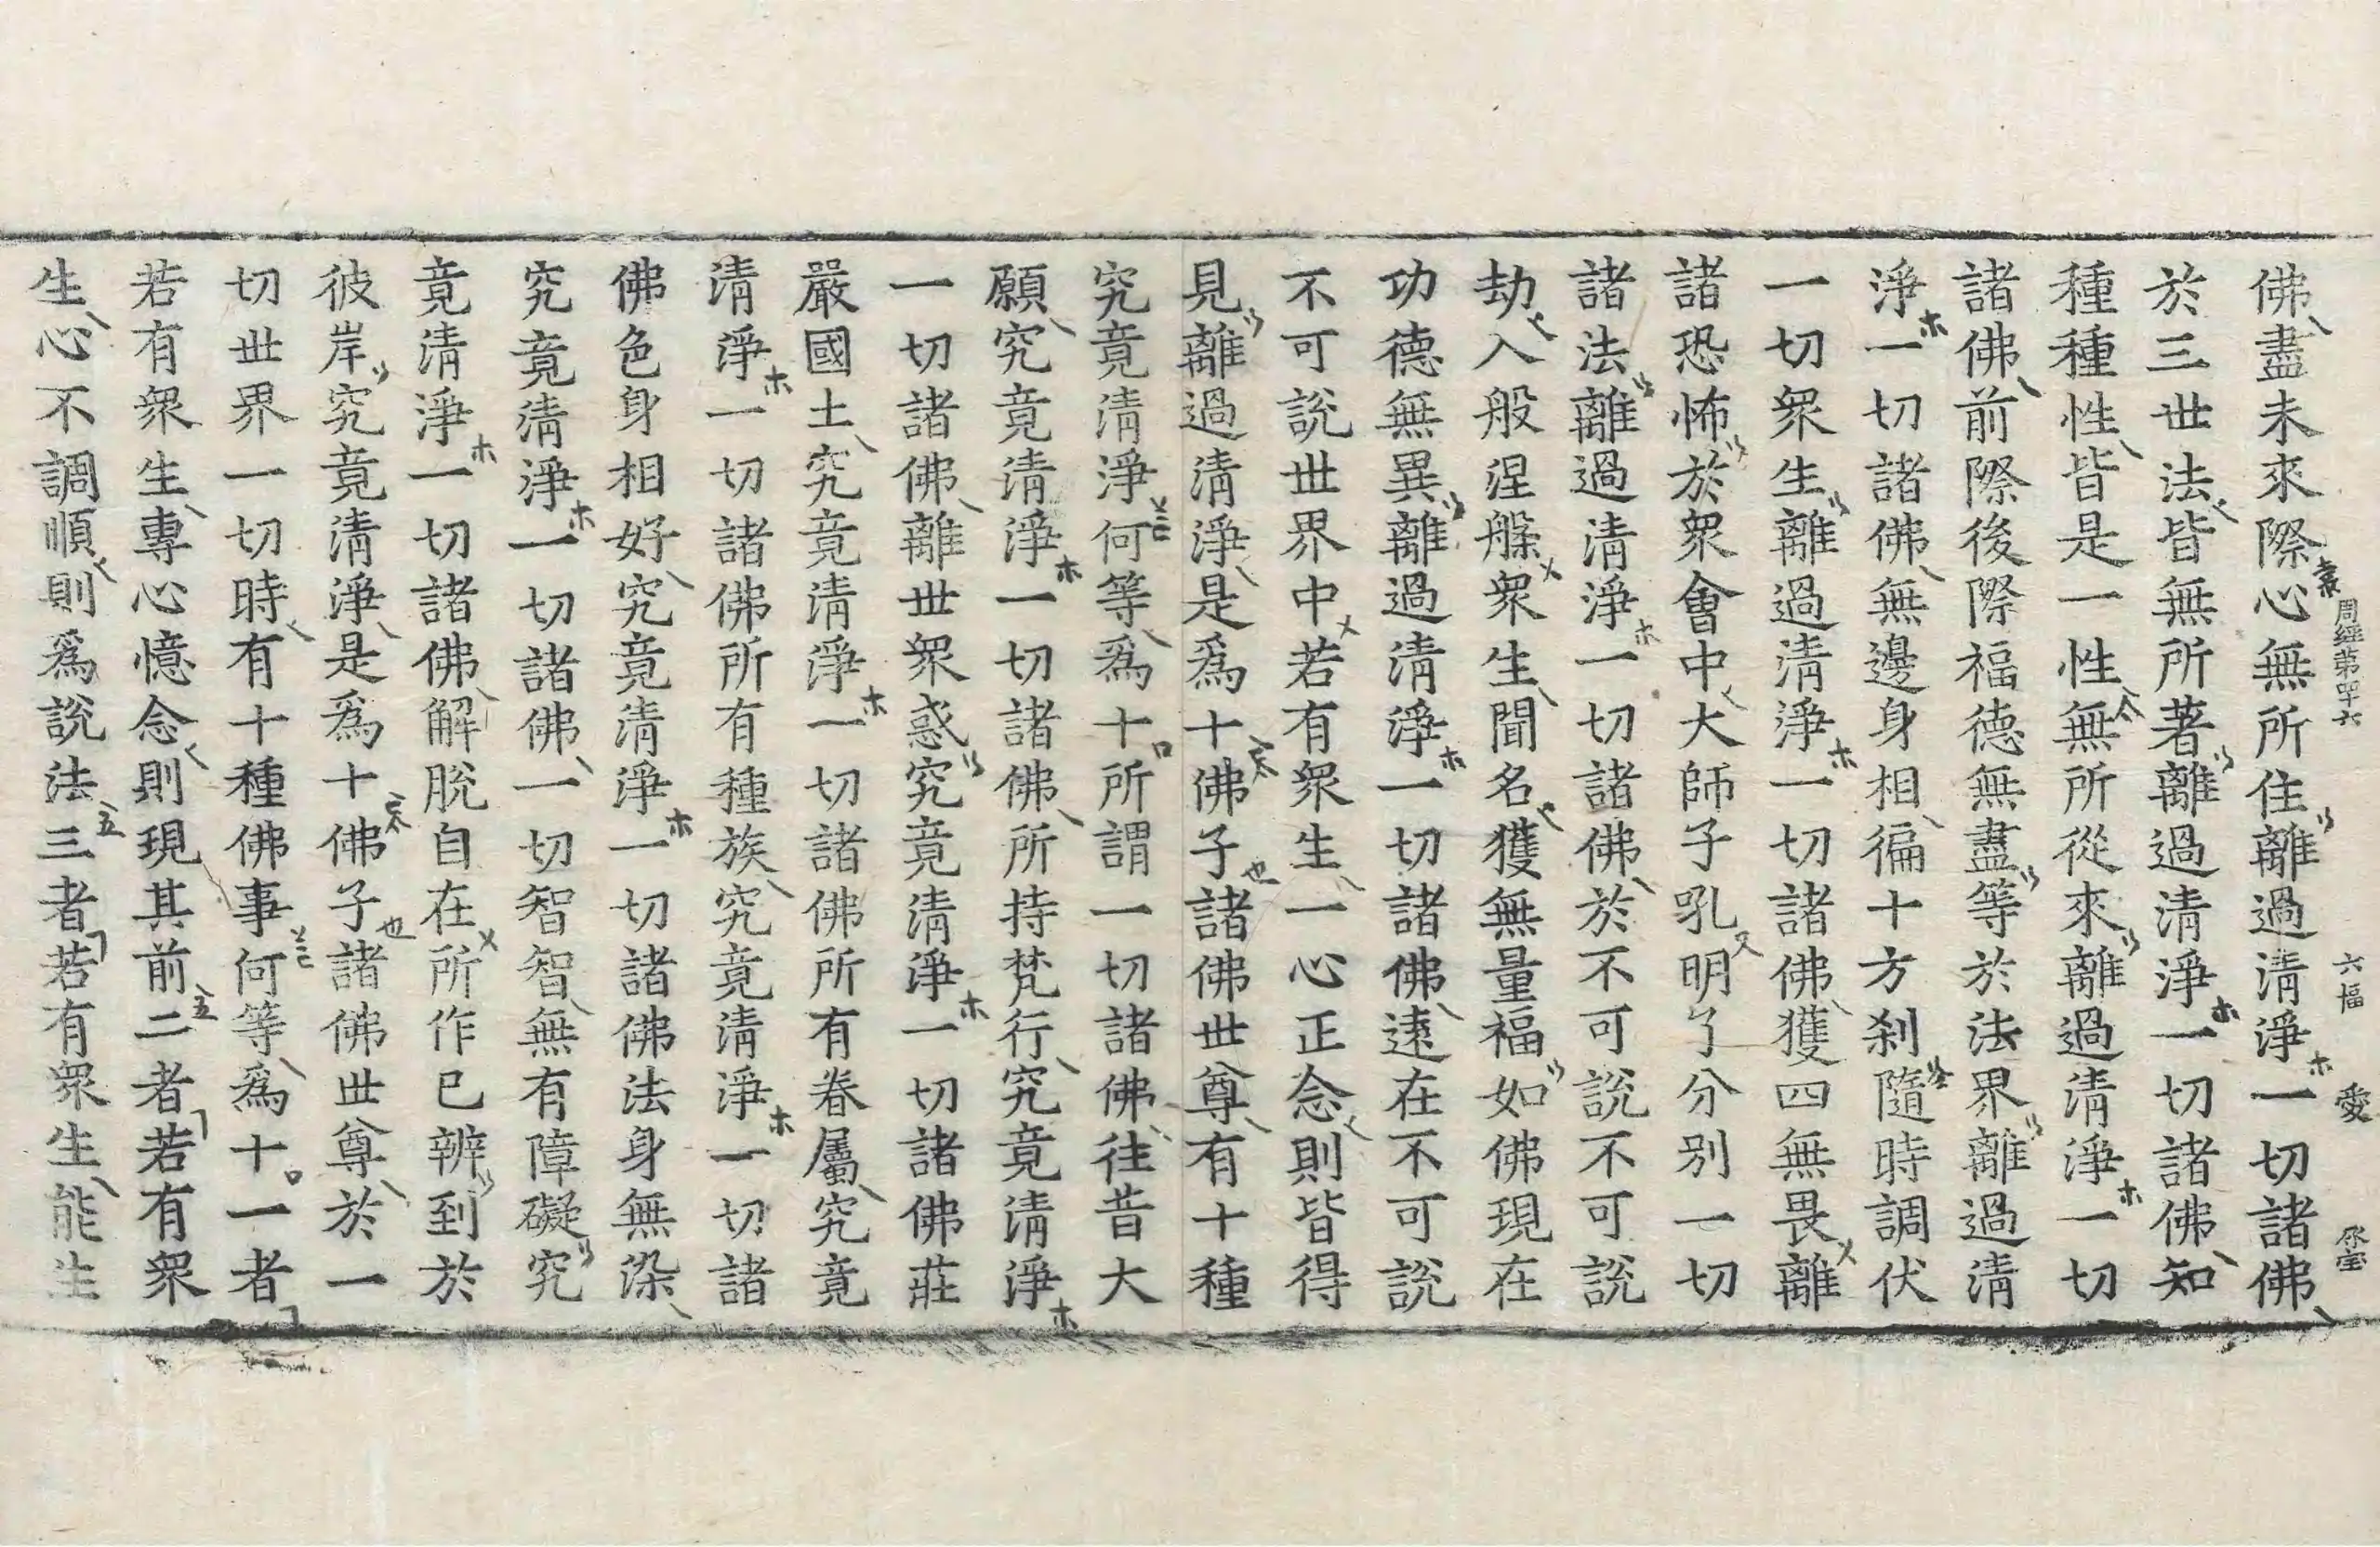 佛盡未來際心無所住離過清淨一切諸佛
周經第卌六 六幅 愛
於三世法皆無所著離過清淨一切諸佛知
種種性皆是一性無所從來離過清淨一切
諸佛前際後際福德無盡等於法界離過清
淨一切諸佛無邊身相徧十方刹隨時調伏
一切衆生離過清淨一切諸佛獲四無畏離
諸恐怖於衆會中大師子吼明了分別一切
諸法離過清淨一切諸佛於不可說不可說
劫入般涅槃衆生聞名獲無量福如佛現在
功德無異離過清淨一切諸佛遠在不可說
不可說世界中若有衆生一心正念則皆得
見離過清淨是爲十佛子諸佛世尊有十種
究竟清淨何等爲十所謂一切諸佛往昔大
願究竟清淨一切諸佛所持梵行究竟清淨
一切諸佛離世衆惑究竟清淨一切諸佛莊
嚴國土究竟清淨一切諸佛所有眷屬究竟
清淨一切諸佛所有種族究竟清淨一切諸
佛色身相好究竟清淨一切諸佛法身無染
究竟清淨一切諸佛一切智智無有障礙究
竟清淨一切諸佛解脫自在所作已辨到於
彼岸究竟清淨是爲十佛子諸佛世尊於一
切世界一切時有十種佛事何等爲十一者
若有衆生專心憶念則現其前二者若有衆
生心不調順則爲說法三者若有衆生能生